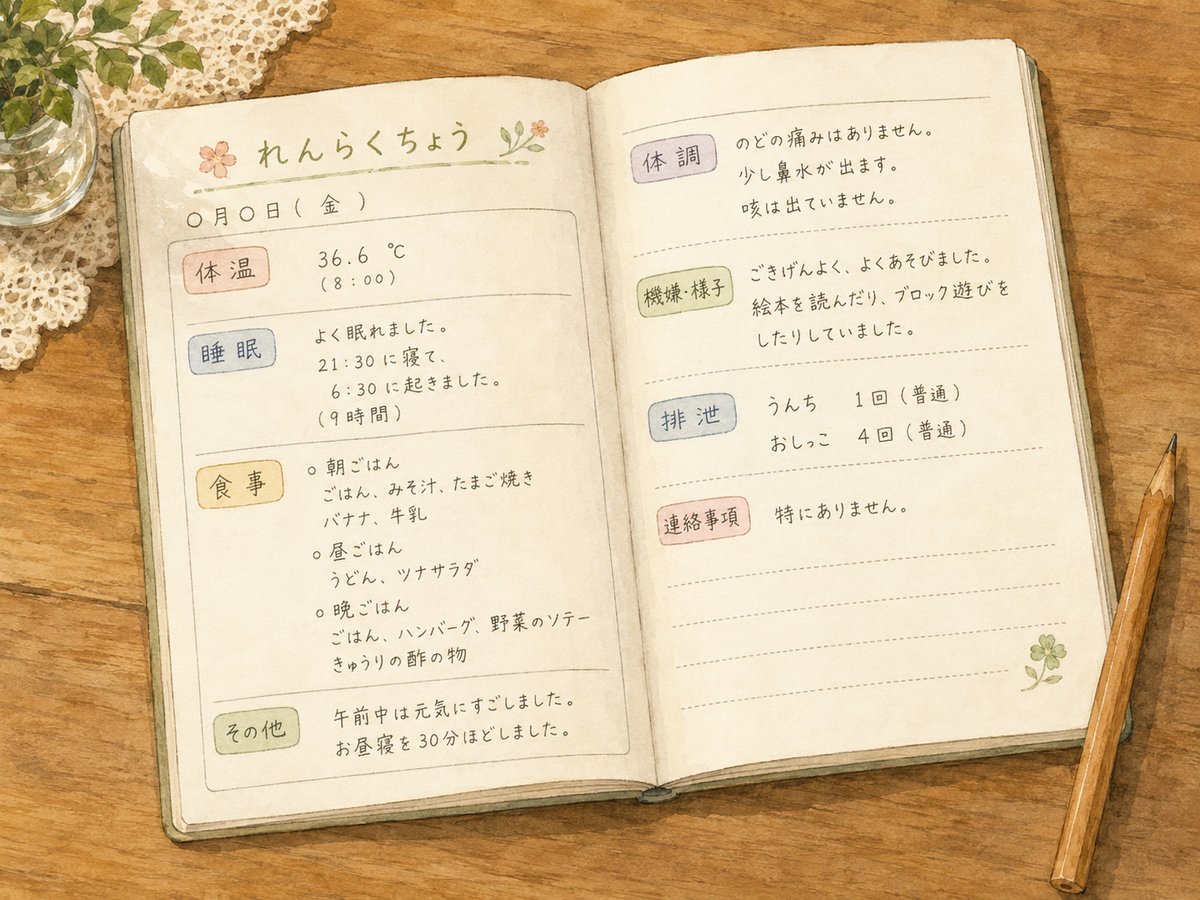 れんらくちょう
○月○日(金)
体温
36.6℃
(8:00)
睡眠
よく眠れました。
21:30に寝て、
6:30に起きました。
(9時間)
食事
○朝ごはん
ごはん、みそ汁、たまご焼き
バナナ、牛乳
○昼ごはん
うどん、ツナサラダ
○晩ごはん
ごはん、ハンバーグ、野菜のソテー
きゅうりの酢の物
その他
午前中は元気にすごしました。
お昼寝を30分ほどしました。
体調
のどの痛みはありません。
少し鼻水が出ます。
咳は出ていません。
機嫌・様子
ごきげんよく、よくあそびました。
絵本を読んだり、ブロック遊びを
したりしていました。
排泄
うんち 1回(普通)
おしっこ 4回(普通)
連絡事項
特にありません。